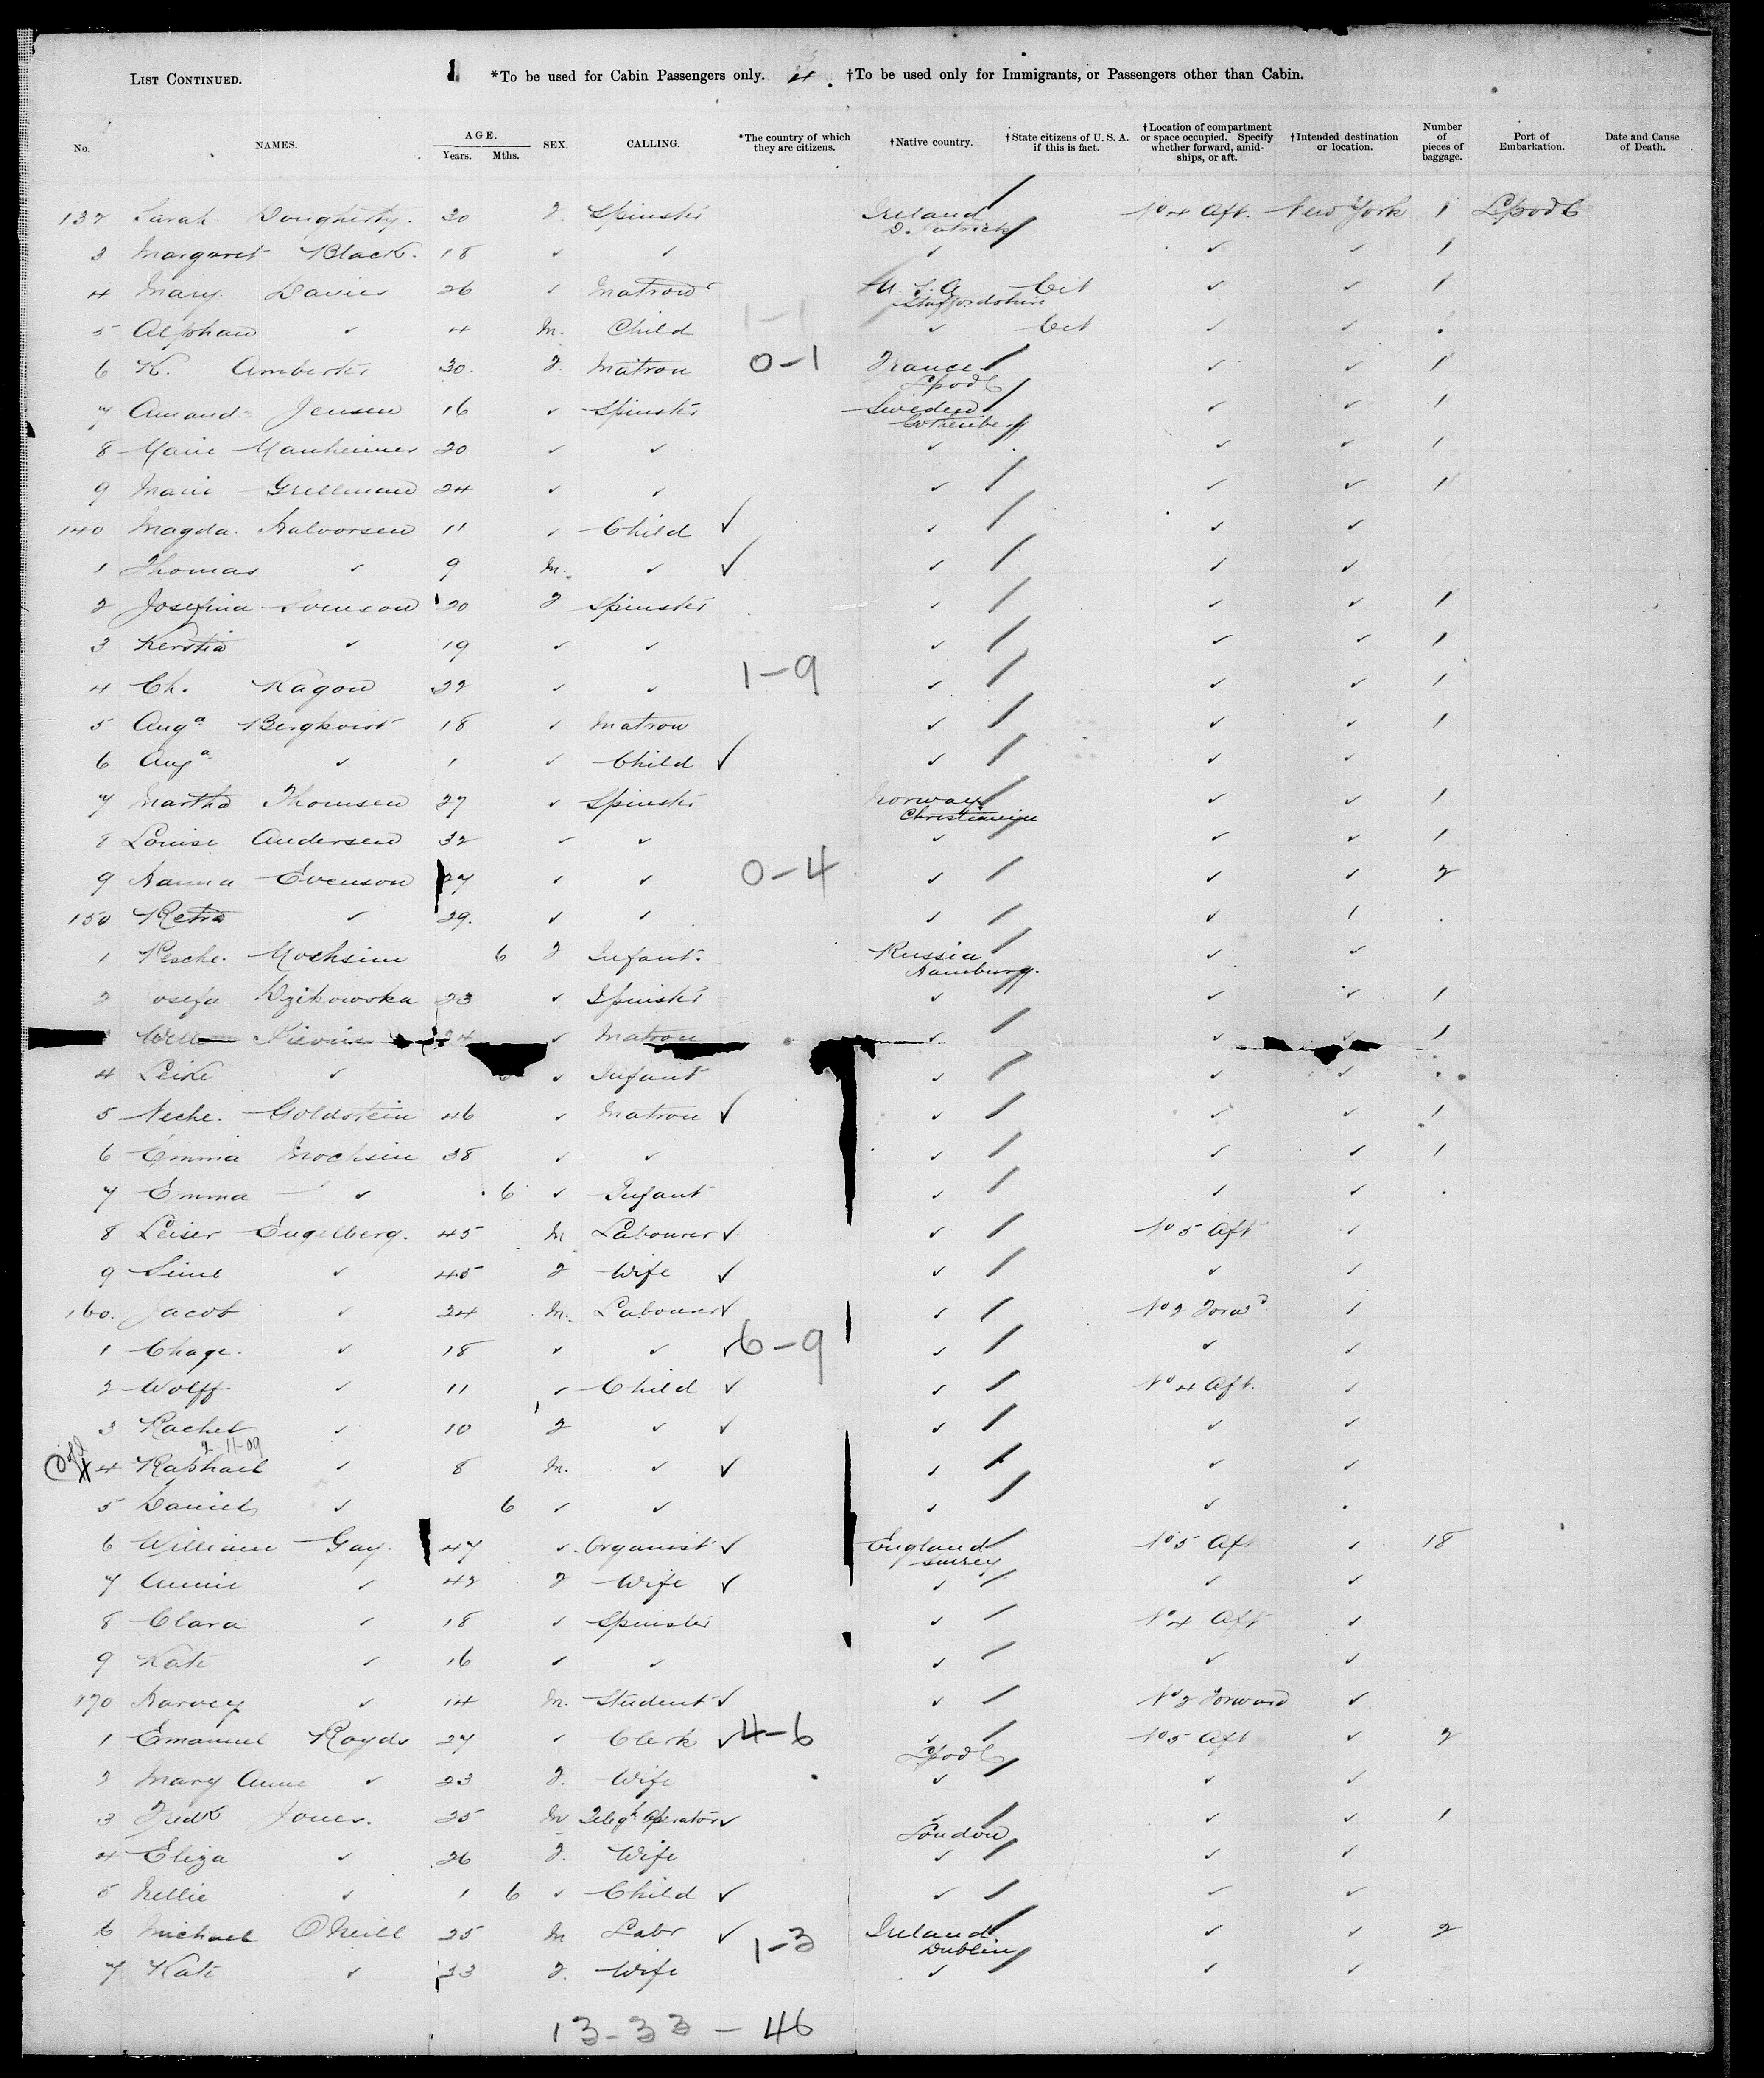 LIST CONTINUED. 1 *To be used for Cabin Passengers only. 4. †To be used only for Immigrants, or Passengers other than Cabin.
No. NAMES. AGE. Years. Mths. SEX. CALLING. *The country of which they are citizens. †Native country. †State citizens of U. S. A. if this is fact. †Location of compartment or space occupied. Specify whether forward, amid-ships, or aft. †Intended destination or location. Number of pieces of baggage. Port of Embarkation. Date and Cause of Death.
132 Sarah Dougherty. 30 F. Spinster Ireland No 4 Aft. New York 1 Lpool
D. Patrick
3 Margaret Black. 18 ✓ ✓ ✓ ✓ ✓ 1
4 Mary Davies 26 ✓ Matron U.S.A Cit ✓ ✓ 1
Staffordshire
5 ✓ 4 M. Child 1-1 ✓ Cit ✓ ✓
6 K. 30. F. Matron 0-1 France ✓ ✓ 1
Lpool
7 Amanda Jensen 16 ✓ Spinster Sweden ✓ ✓ 1
Gothenberg
8 Marie Manheimer 20 ✓ ✓ ✓ ✓ ✓ 1
9 Marie Grellmann 24 ✓ ✓ ✓ ✓ ✓ 1
140 Magda. Halvorsen 11 ✓ Child ✓ ✓ ✓ ✓
1 Thomas ✓ 9 M. ✓ ✓ ✓ ✓ ✓
2 Josefina Svenson 20 F Spinster ✓ ✓ ✓ 1
3 Kerstia ✓ 19 ✓ ✓ ✓ ✓ ✓ 1
4 Ch. Kagon 22 ✓ ✓ 1-9 ✓ ✓ ✓ 1
5 Augª Bergkvist 18 ✓ Matron ✓ ✓ ✓ 1
6 Augª ✓ 1 ✓ Child ✓ ✓ ✓ ✓
7 Martha Thomsen 27 ✓ Spinster Norway ✓ ✓ 1
Christiania
8 Louise Andersen 32 ✓ ✓ ✓ ✓ ✓ 1
9 Hanna Evenson 27 ✓ ✓ 0-4 ✓ ✓ ✓ 2
150 Retra ✓ 29. ✓ ✓ ✓ ✓ 1
1 Pesche. Mochsim 6 F Infant. Russia ✓ ✓
Hamburg.
2 Josefa Dzikowska 23 ✓ Spinster ✓ ✓ ✓ 1
24 ✓ Matron ✓ ✓ ✓ 1
4 Leike ✓ ✓ Infant ✓ ✓ ✓
5 Neche. Goldstein 46 ✓ Matron ✓ ✓ ✓ ✓ 1
6 Emma Mochsim 38 ✓ ✓ ✓ ✓ ✓ 1
7 Emma ✓ 6 ✓ Infant ✓ ✓ ✓
8 Leiser Engelberg. 45 M Labourer ✓ ✓ No 5 Aft ✓
9 Sime ✓ 45 F Wife ✓ ✓ ✓ ✓
160. Jacob ✓ 24 M. Labourer ✓ ✓ No 2 Forwd ✓
1 Chage. ✓ 18 ✓ ✓ ✓ 6-9 ✓ ✓ ✓
2 Wolff ✓ 11 ✓ Child ✓ ✓ No 4 Aft. ✓
3 Rachel ✓ 10 F ✓ ✓ ✓ ✓ ✓
2-11-09
4 Raphael ✓ 8 M. ✓ ✓ ✓ ✓ ✓
5 Daniel ✓ 6 ✓ ✓ ✓ ✓
6 William Gay. 47 ✓ Organist ✓ England No 5 Aft ✓ 18
Surrey
7 Annie ✓ 42 F Wife ✓ ✓ ✓ ✓
8 Clara ✓ 18 ✓ Spinster ✓ No 4 Aft ✓
9 Kate ✓ 16 ✓ ✓ ✓ ✓ ✓
170 Harvey ✓ 14 M. Student ✓ ✓ No 2 Forward ✓
1 Emanuel Royds 27 ✓ Clerk ✓ 4-6 ✓ No 5 Aft ✓ 2
Lpool
2 Mary Anne ✓ 23 F. Wife ✓ ✓ ✓
3 Fredk Jones. 25 M Telegh Operator ✓ ✓ ✓ ✓ 1
London
4 Eliza ✓ 26 F. Wife ✓ ✓ ✓
5 Nellie ✓ 1 6 ✓ Child ✓ ✓ ✓ ✓
6 Michael O'Neill 25 M Labr ✓ 1-3 Ireland ✓ ✓ 2
Dublin
7 Kate ✓ 23 F. Wife ✓ ✓ ✓
13-33-46